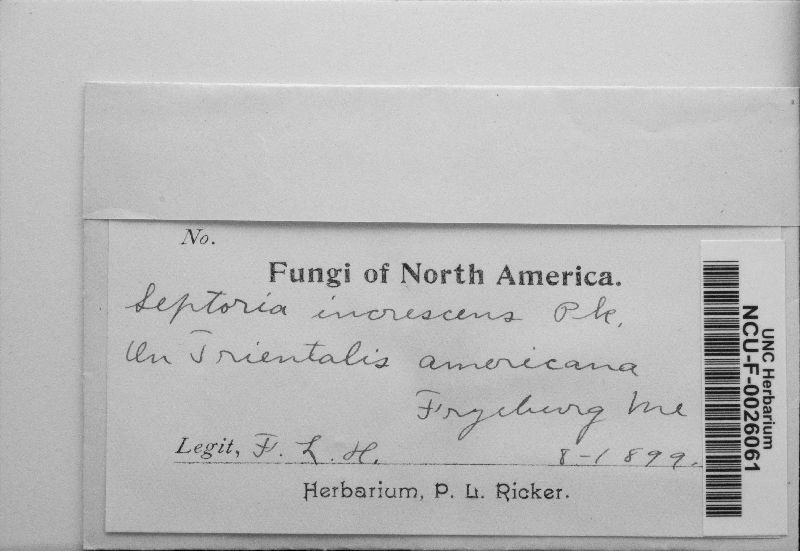 No.
Fungi of North America.
Septoria increscens Pk.
On Trientalis americana
Fryeburg Me
Legit, F. L. H. 8-1899.
Herbarium, P. L. Ricker.
UNC Herbarium
NCU-F-0026061